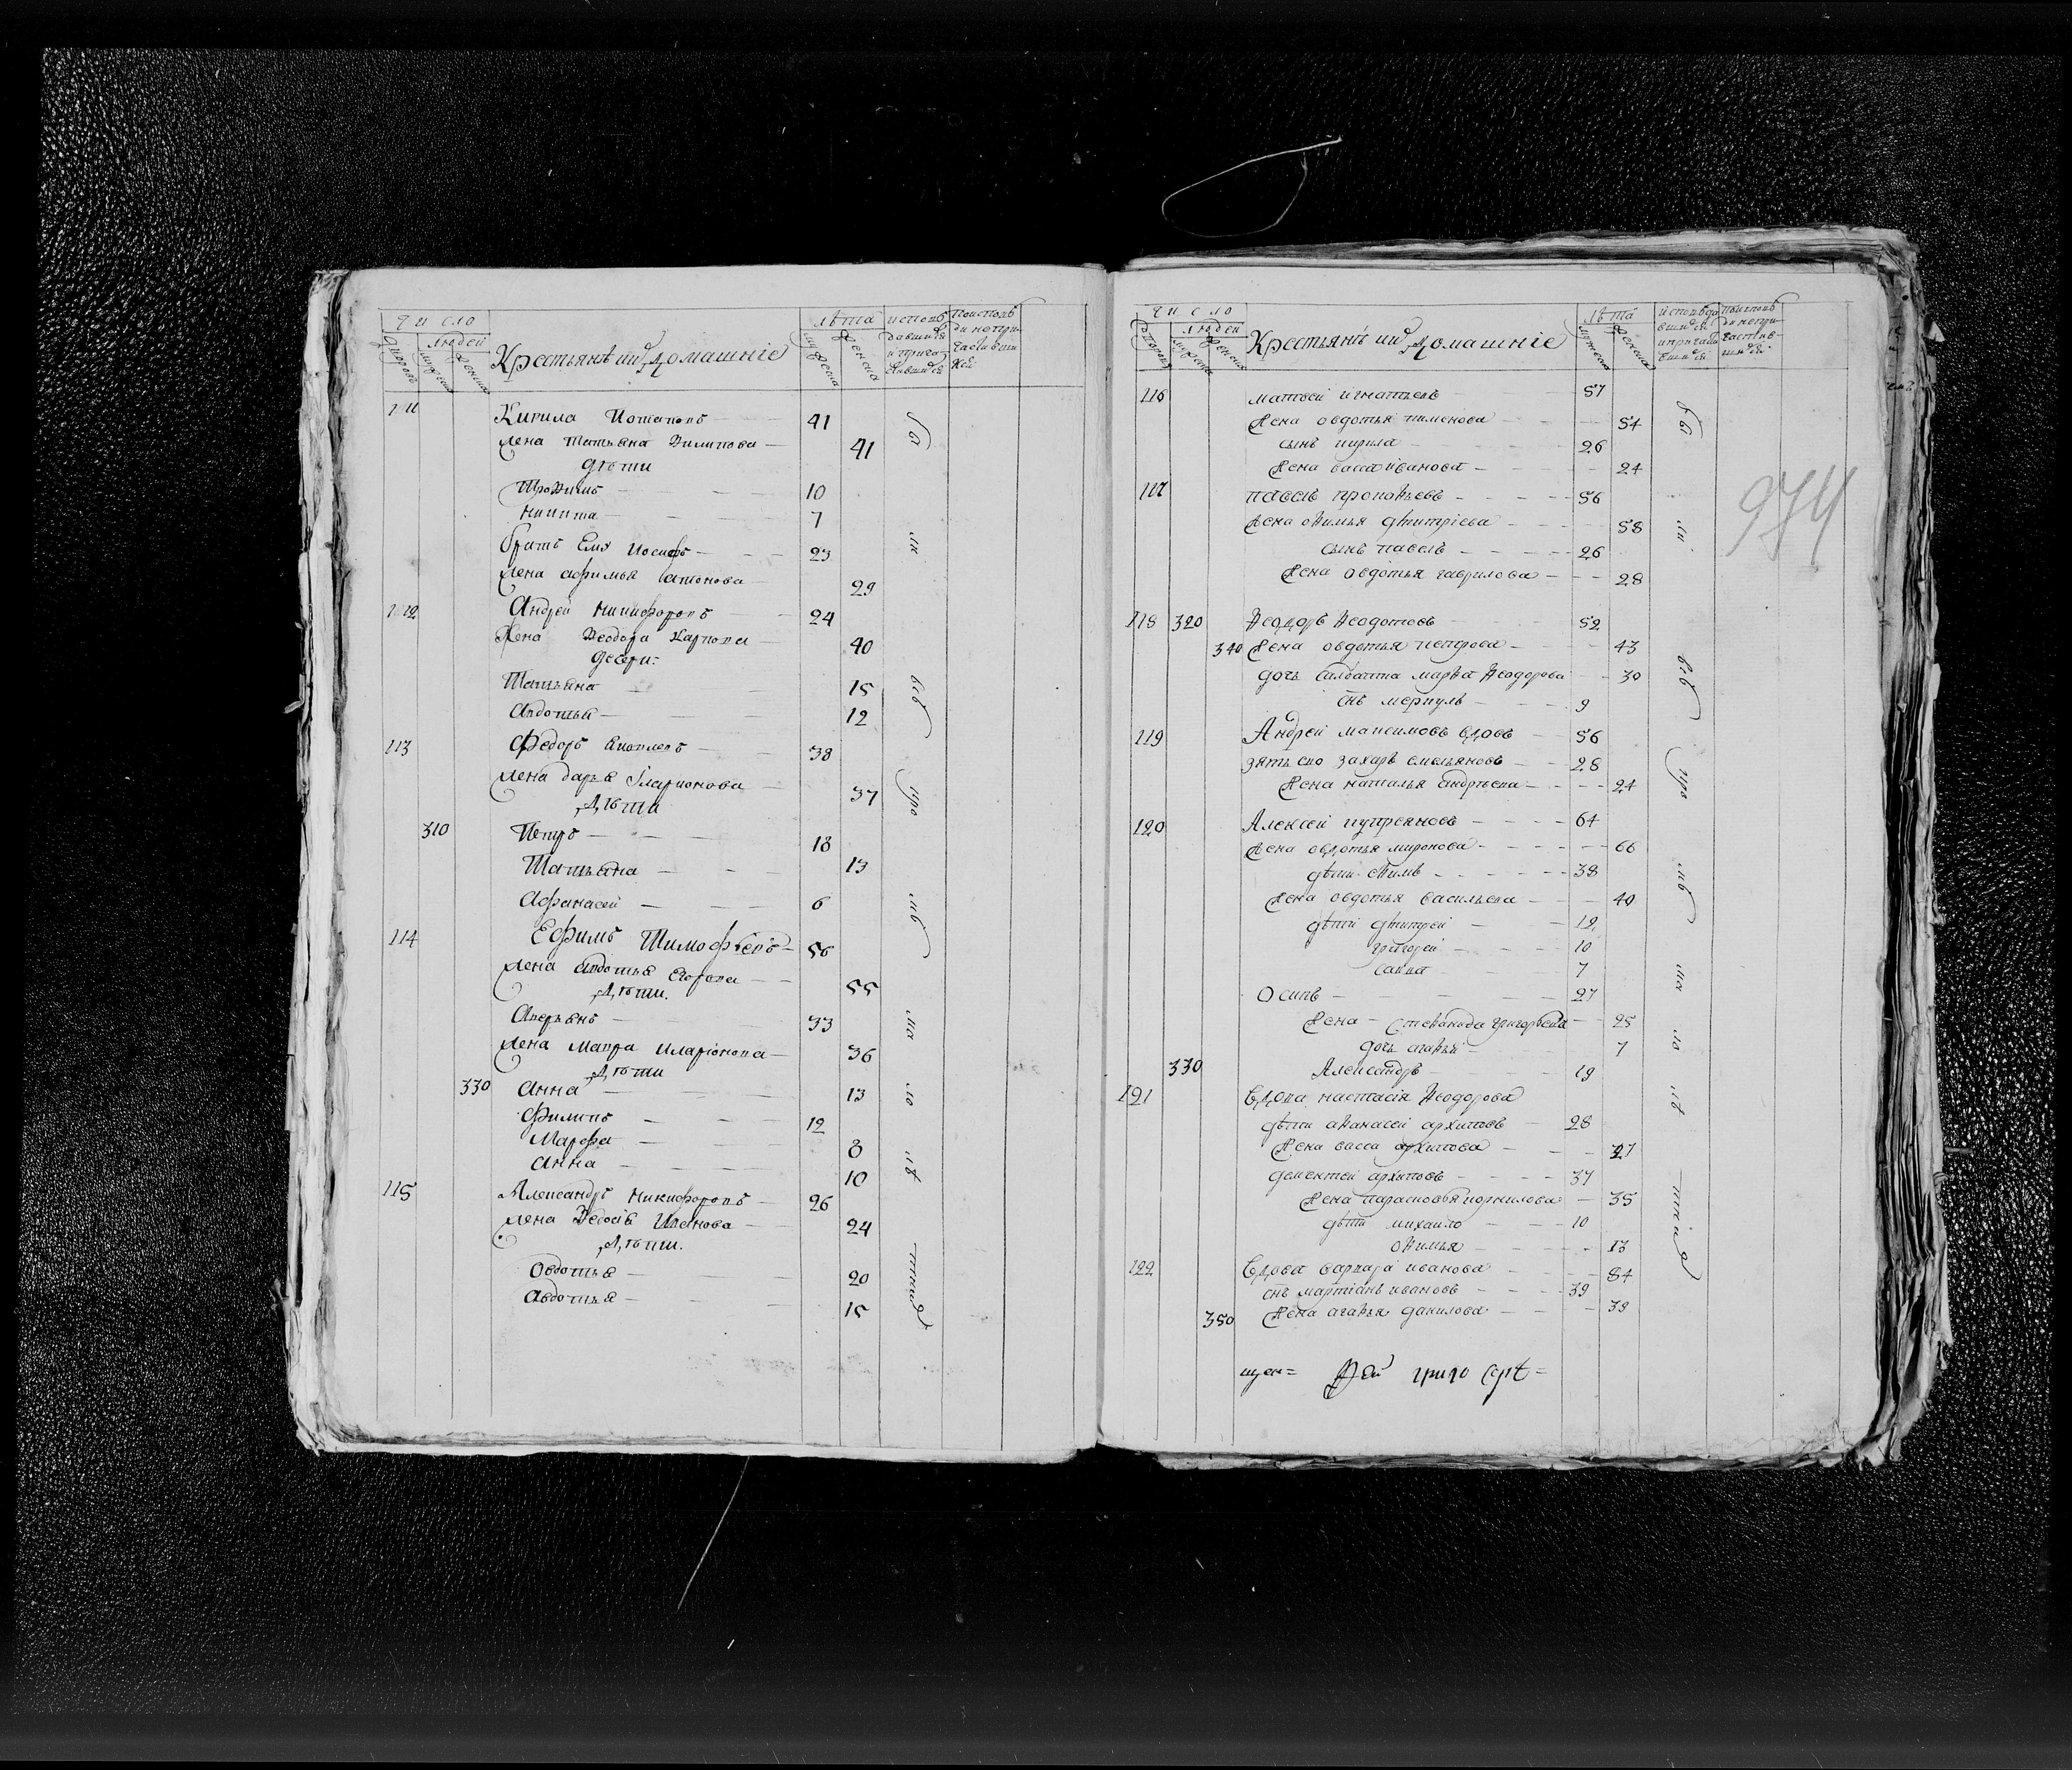 число
людей
дворовъ мужеска женска
Крестьянѣ ихъ домашніе
лѣта
мужеска женска
111 Кирила Потаповъ 41
жена Татьяна Филипова 41
дѣти
Трофимъ 10
Никита 7
братъ Ево Иосифъ 23
жена афимья 29
112 Андрей Никифоровъ 24
жена Феодора Карпова 40
дочери:
Татьяна 15
Авдотья 12
113 Федоръ Яковлевъ 38
жена дарья Иларионова 37
Дѣти
310 Петръ 18
Татьяна 13
Афанасей 6
114 Ефимъ Тимофѣевъ 56
жена Авдотья Егорова 55
Дѣти.
Аверьянъ 33
жена Мавра Иларіонова 36
Дѣти
330 Анна 13
Филипъ 12
Марфа 8
Анна 10
115 Александръ Никифоровъ 26
жена Федосья Иванова 24
Дѣти.
Овдотья 20
Авдотья 15
число
людей
мужеска женска
Крестьянѣ ихъ домашніе
лѣта
мужеска женска
974
116 матвей игнатьевъ 57
жена овдотья пименова 54
сынъ кирила 26
жена васса иванова 24
117 павелъ прокофьевъ 56
жена офимья дмитріева 58
сынъ павелъ 26
жена овдотья гаврилова 28
118 320 Феодоръ Феодотовъ 52
340 жена овдотья петрова 43
дочь салдатка марфа Феодорова 30
снъ меркулъ 9
119 Андрей максимовъ вдовъ 56
зять ево захаръ емельяновъ 28
жена наталья андрѣева 24
120 Алексей купреяновъ 64
жена овдотья миронова 66
дѣти 38
жена овдотья васильева 40
дѣти дмитрей 12
григорей 10
савва 7
Осипъ 27
жена Стефанида григорьева 25
дочь агафья 7
330 Александръ 19
121 Вдова настасія Феодорова
дѣти афанасей архиповъ 28
жена васса архипова 27
дементей архиповъ 37
жена парасковья корнилова 35
дѣти михайло 10
офимья 13
122 Вдова варвара иванова 84
снъ мартіанъ ивановъ 39
350 жена агафья данилова 39